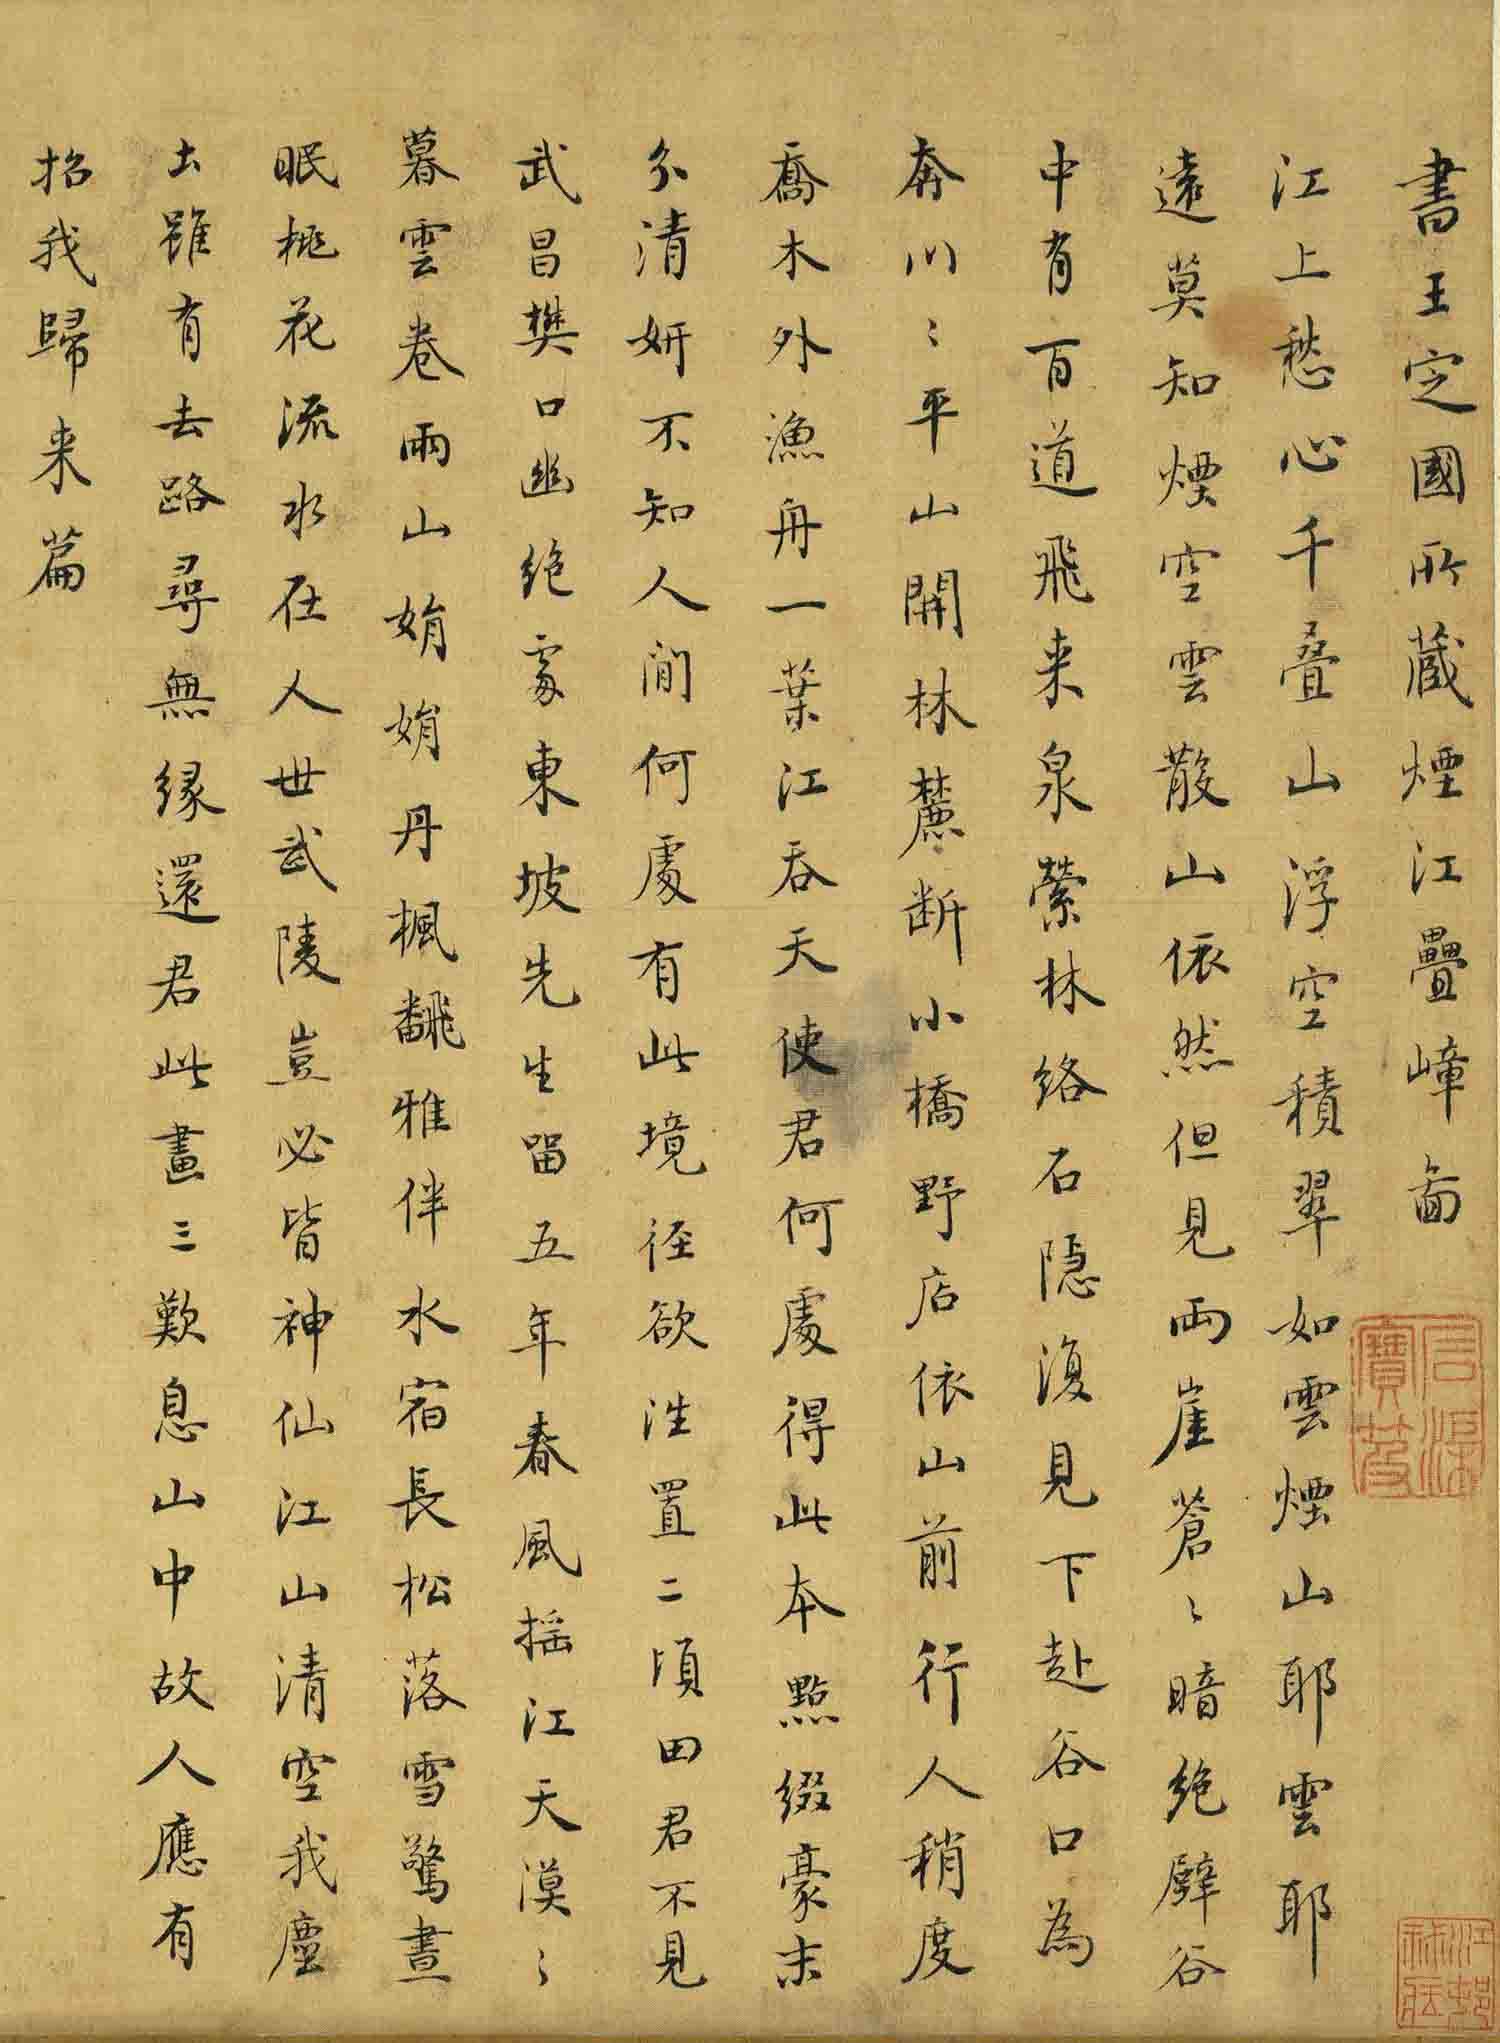 書王定國所蔵煙江疊嶂畵
江上愁心千叠山浮空積翠如雲煙山耶雲耶
遠莫知煙空雲散山依然但見兩崖蒼〻暗絶壁谷
中有百道飛来泉縈林絡石隱復見下赴谷口為
奔川〻平山開林麓断小橋野店依山前行人稍度
喬木外漁舟一葉江吞天使君何處得此本點綴豪末
分清妍不知人間何處有此境徑欲往置二頃田君不見
武昌樊口幽絶處東坡先生留五年春風摇江天漠〻
暮雲卷雨山娟娟丹楓翻雅伴水宿長松落雪驚晝
眠桃花流水在人世武陵豈必皆神仙江山清空我塵
土雖有去路尋無緣還君此畫三歎息山中故人應有
招我歸来篇